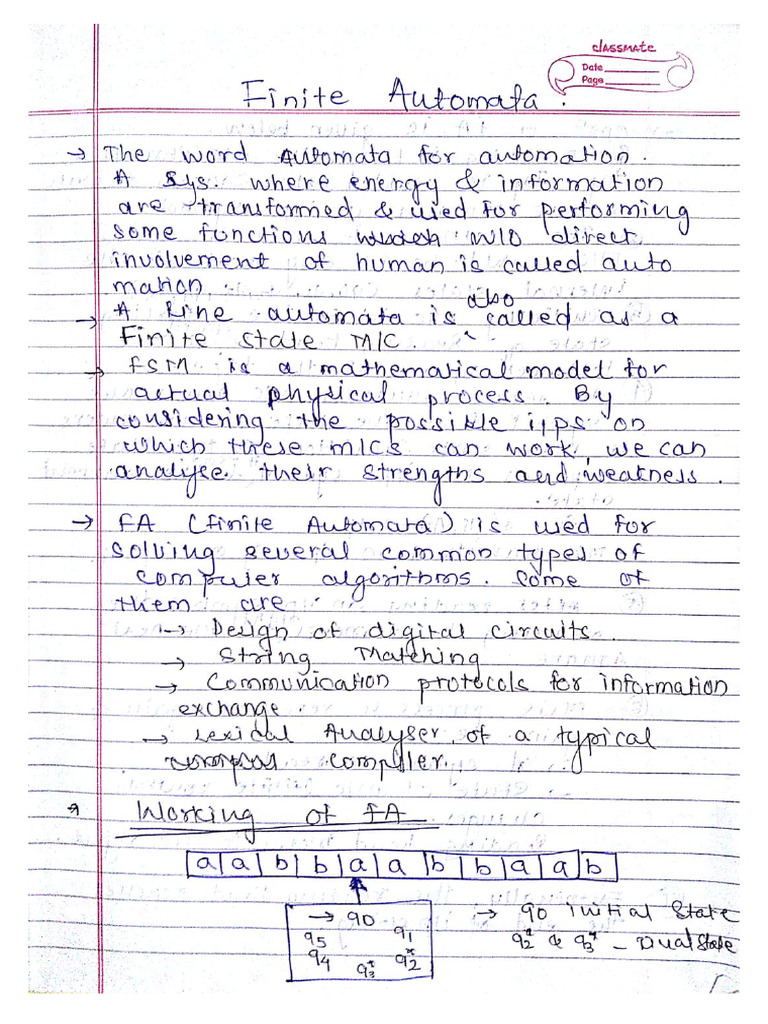 classmate
Date
Page
Finite Automata.
→ The word Automata for automation.
A sys. where energy & information
are transformed & used for performing
some functions w/o direct
involvement of human is called auto
mation.
also
→ A Fine automata is called as a
Finite State M/C.
→ FSM is a mathematical model for
actual physical process. By
considering the possible i/ps on
which these M/Cs can work, we can
analyse their strengths and weakness.
→ FA (Finite Automata) is used for
solving several common types of
computer algorithms. Some of
them are :
→ Design of digital circuits.
→ String Matching
→ Communication protocols for information
exchange
→ Lexical Analyser of a typical
compiler.
→ Working of FA
a a b b a a b b a a b
→ q0
q5 q1
q4 q3* q2*
→ q0 initial State
q2* & q3* - Dual State